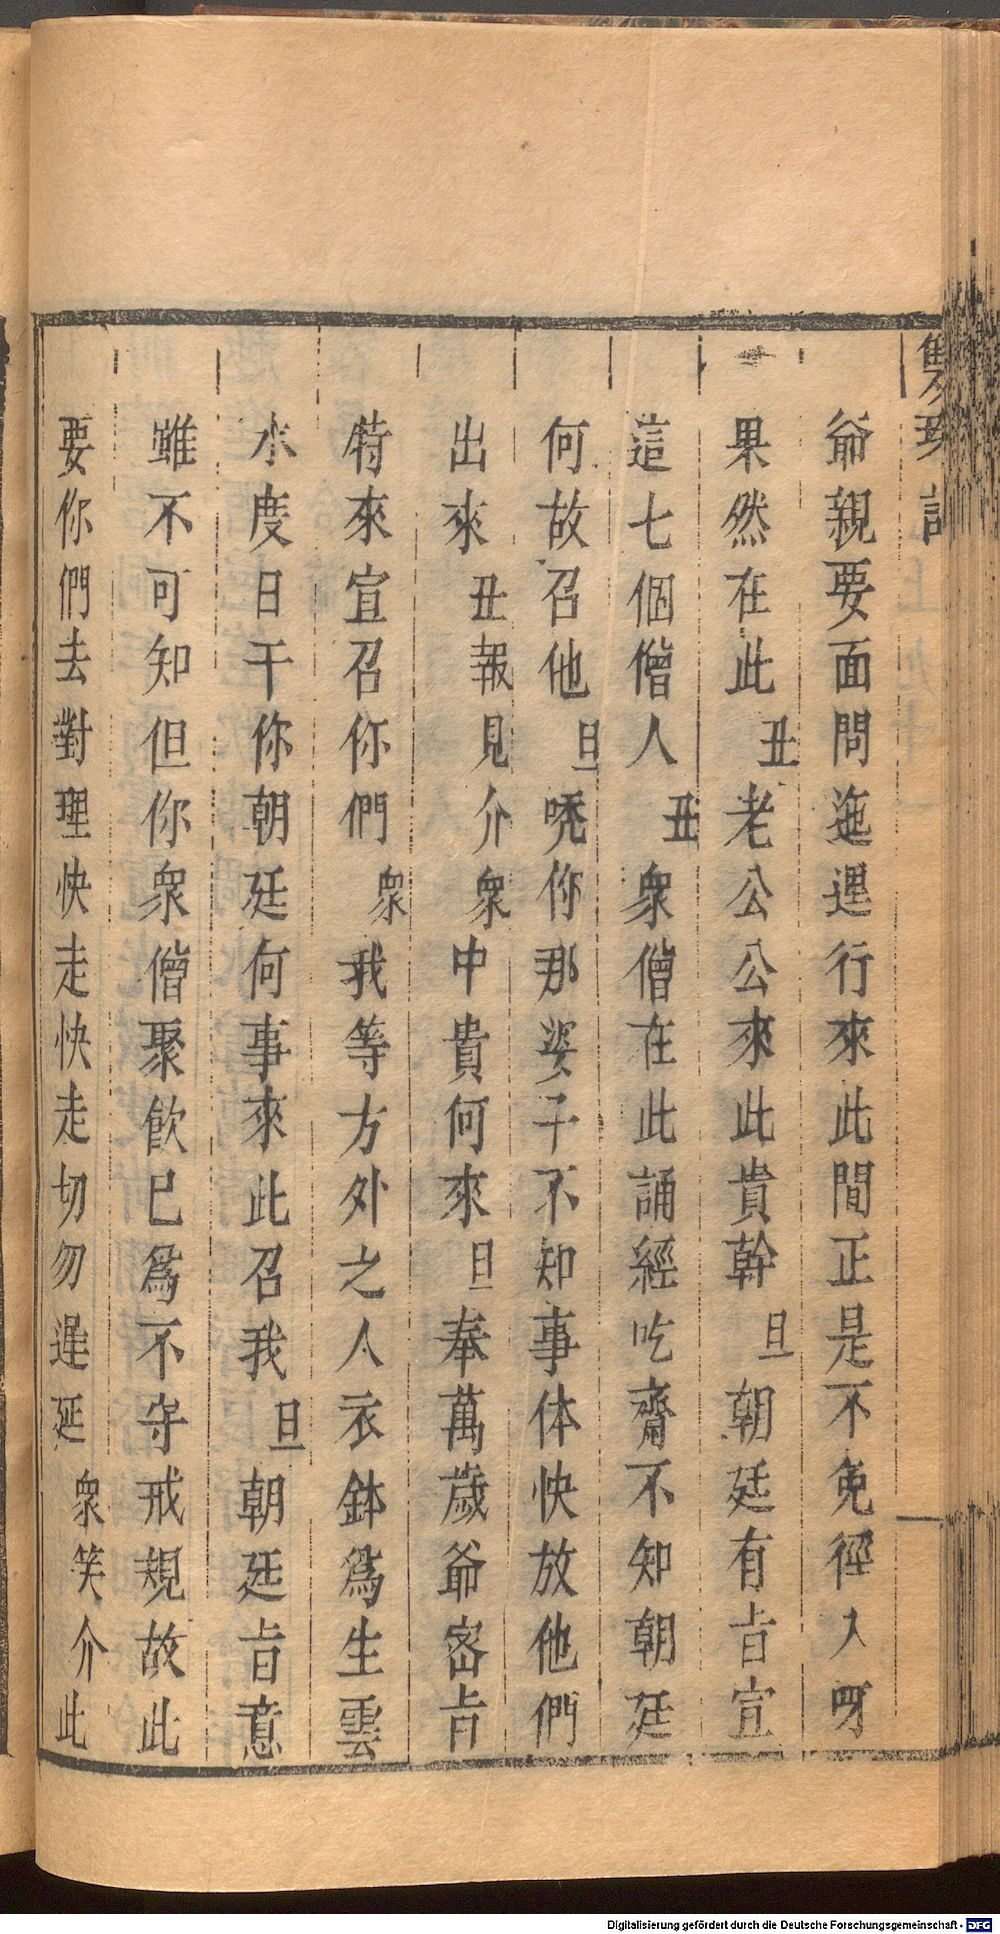 爺親要面問迤逕行來此間正是不免徑入呀
果然在此丑老公公來此貴幹旦朝廷有旨宣
這七個僧人丑衆僧在此誦經吃齋不知朝廷
何故召他旦唗你那婆子不知事体快放他們
出來丑報見介衆中貴何來旦奉萬歲爺密旨
特來宣召你們衆我等方外之人衣鉢爲生雲
水度日干你朝廷何事來此召我旦朝廷旨意
雖不可知但你衆僧聚飲已爲不守戒規故此
要你們去對理快走快走切勿遲延衆笑介此
Digitalisierung gefördert durch die Deutsche Forschungsgemeinschaft - DFG